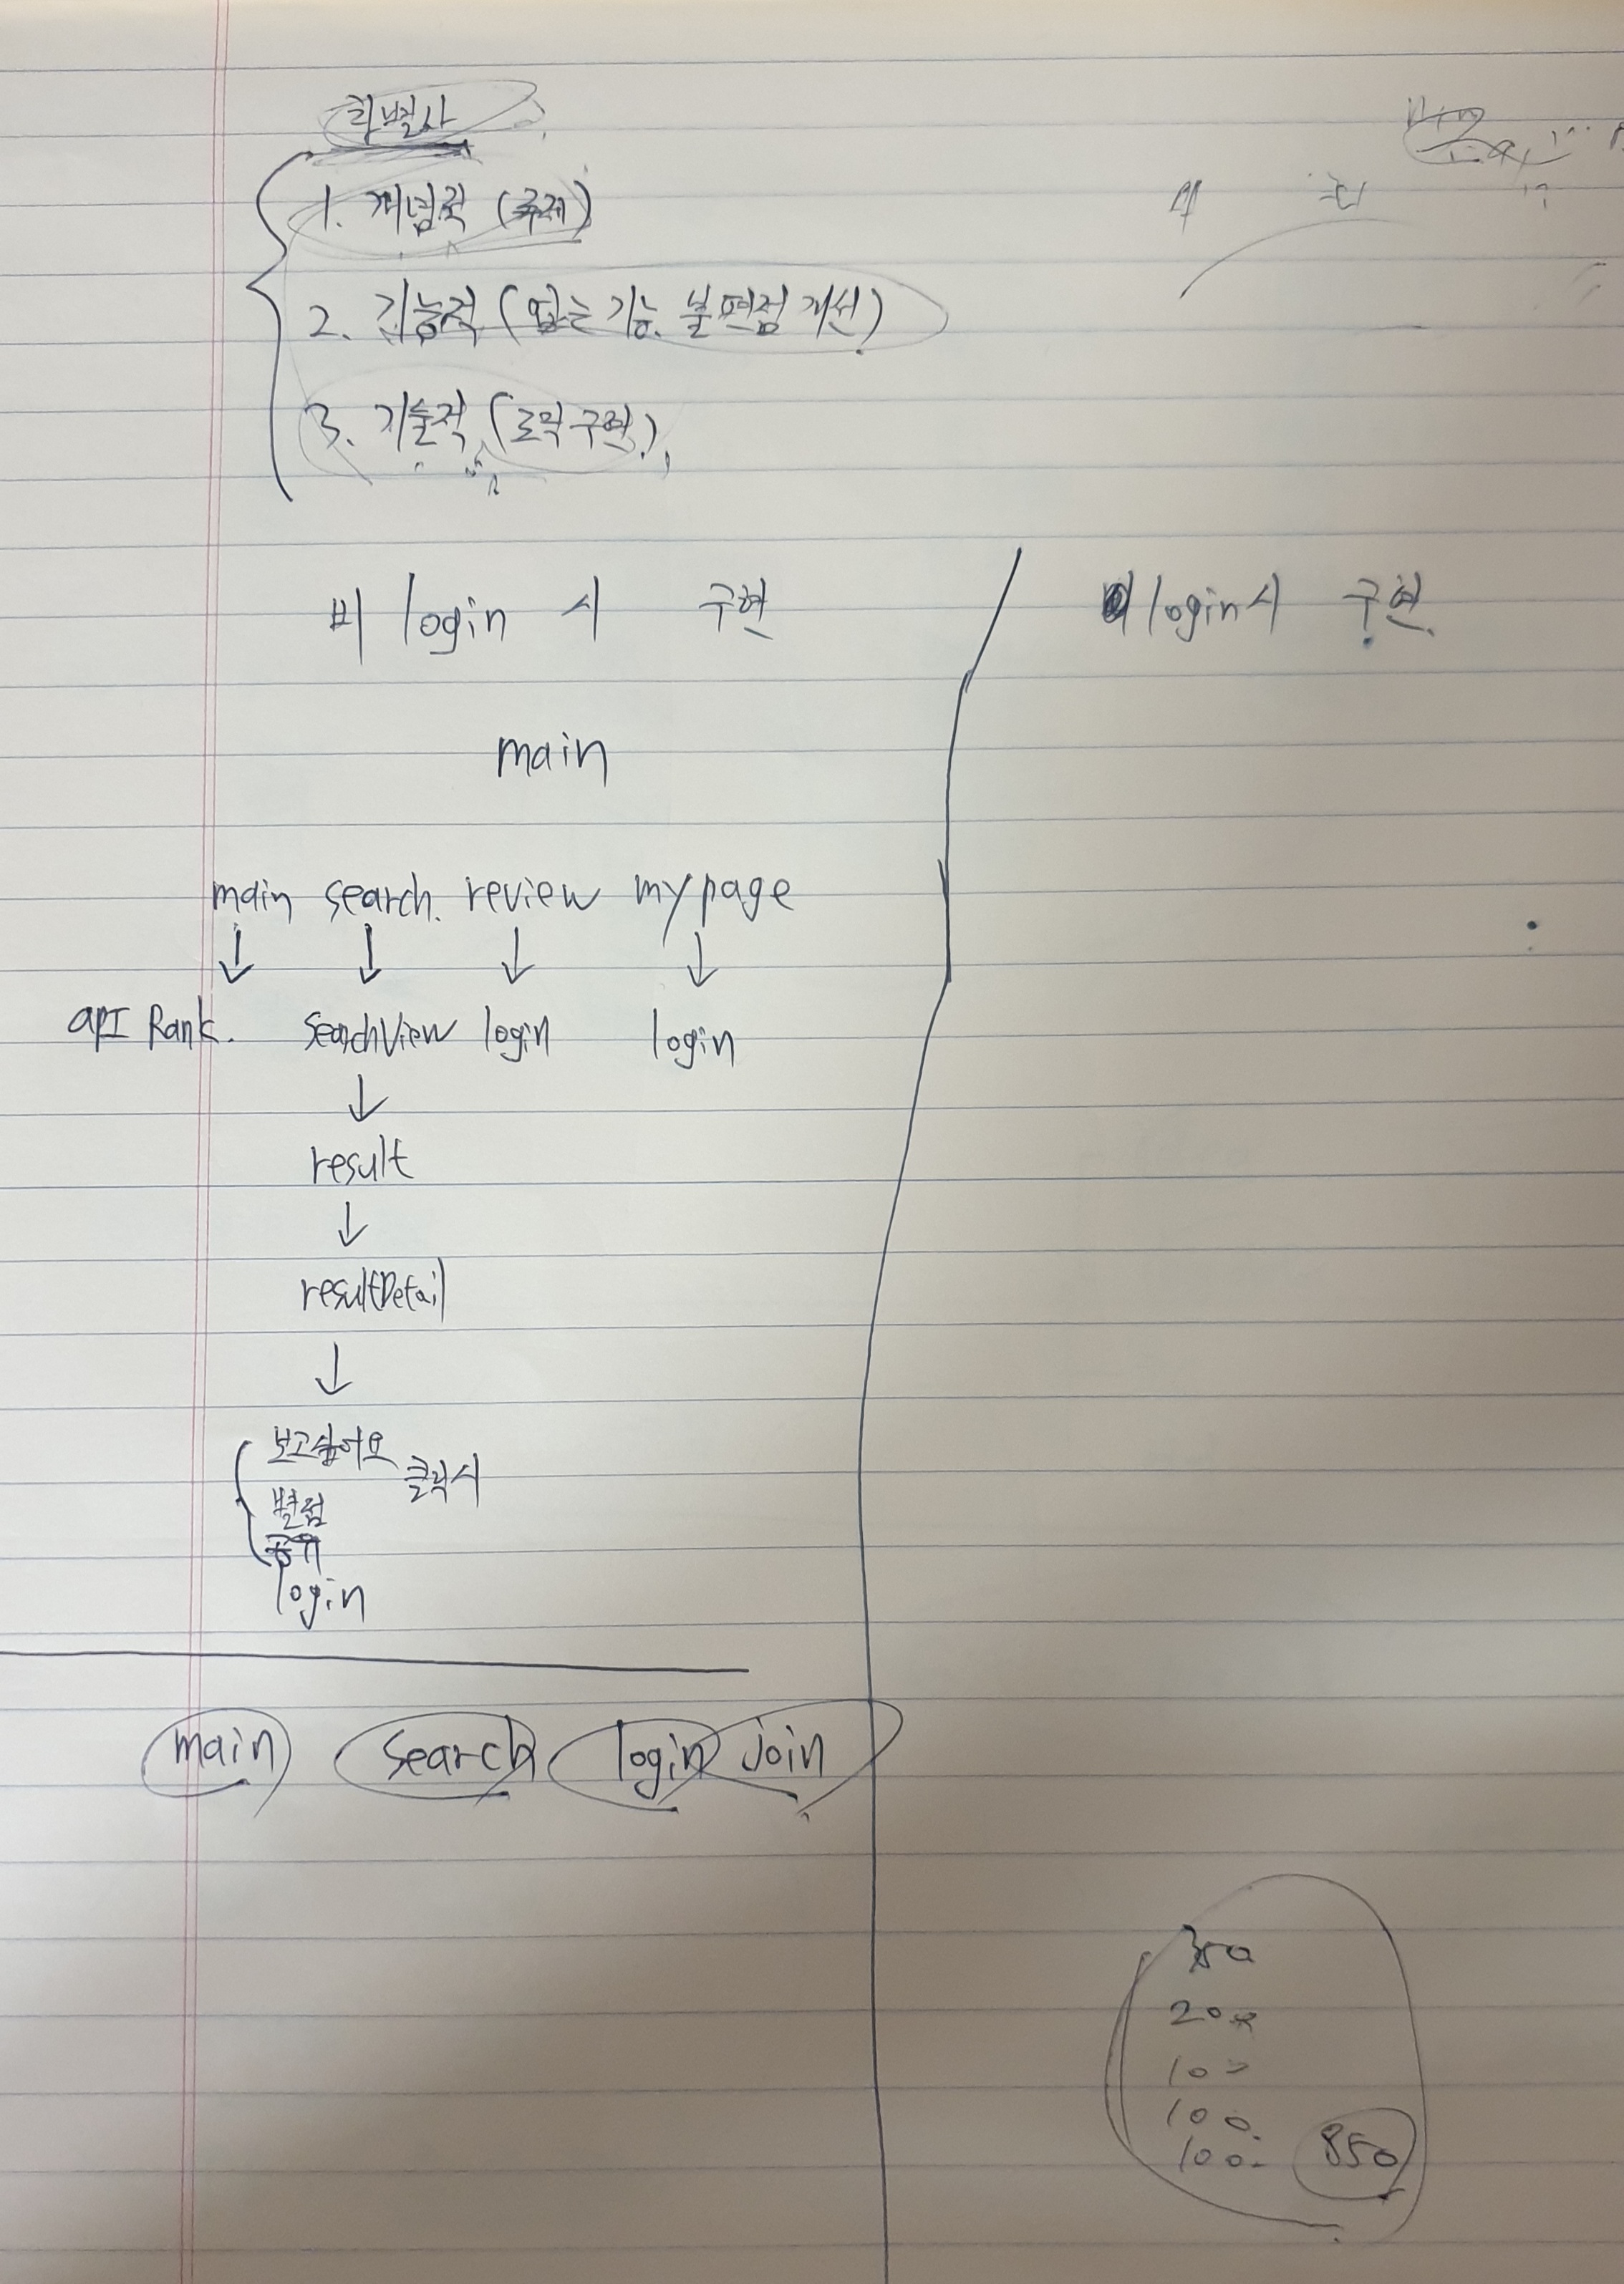 차별사
1. 개념적 (주제)
2. 기능적 (없는 기능. 불편점 개선)
3. 기술적 (로직 구현).
비 login 시 구현
main
main search. review mypage
↓ ↓ ↓ ↓
API Rank. SearchView login login
↓
result
↓
resultDetail
↓
보고싶어요 클릭시
별점
공유
login
main search login join
login시 구현.
350
200
100
100.
100. 850